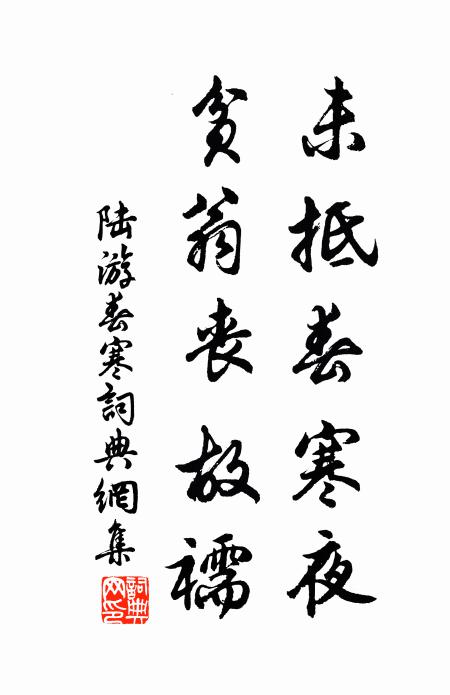 未抵春寒夜
貧翁喪故襦
陸游春寒詞典網集